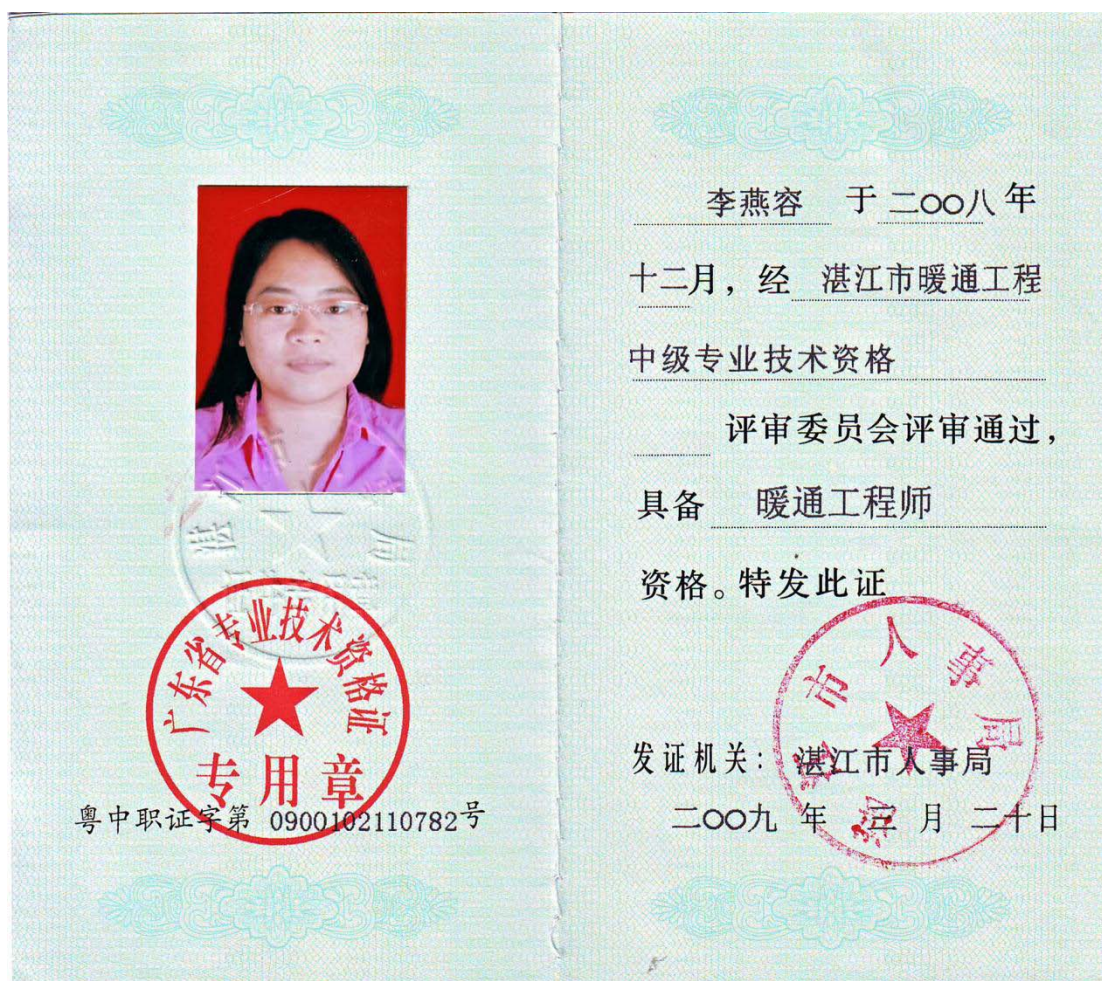 广东省专业技术资格证
专用章
粤中职证字第 0900102110782号
李燕容 于 二〇〇八 年
十二月，经 湛江市暖通工程
中级专业技术资格
评审委员会评审通过，
具备 暖通工程师
资格。特发此证
湛江市人事局
发证机关：湛江市人事局
二〇〇九 年 三 月 二十日